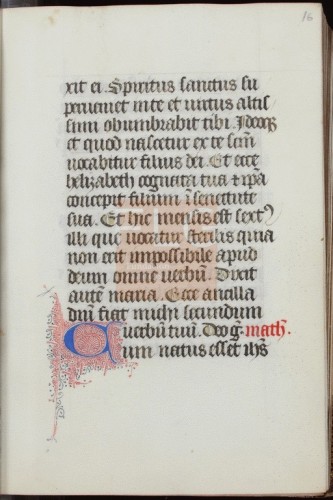 16
xit ei. Spiritus sanctus su
perueniet in te et uirtus altis
simi obumbrabit tibi. Ideoqʒ
et quod nascetur ex te scm̄
uocabitur filius dei. Et ecce
helizabeth cognata tua ⁊ ip̄a
concepit filium ī senectute
sua. Et hic mensis est sextꝰ
illi que uocatur sterilis quia
non erit impossibile apud
deum omne uerbū. Dixit
autē maria. Ecce ancilla
dn̄i fiat michi secundum
uerbū tuū. Deo g̅. math̅.
Cum natus esset ihs̄